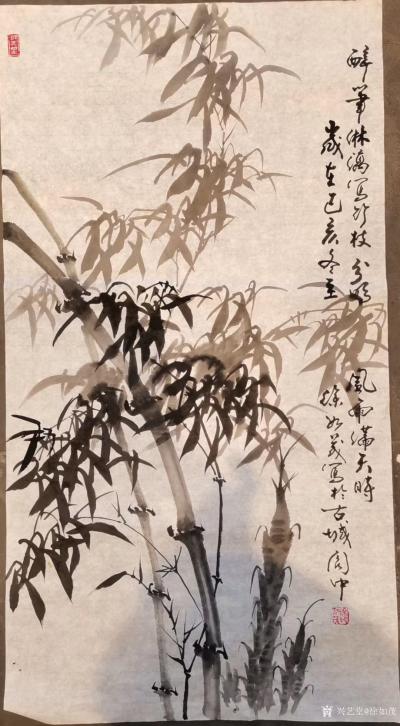 醉筆淋漓寫竹枝 分明 風雨滿天時
歲在己亥冬至 徐如茂寫於古城閬中
兴艺堂@徐如茂